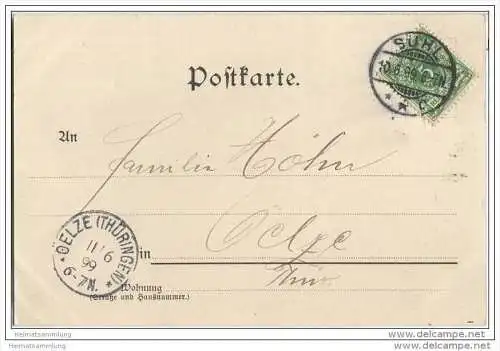 SUHL
10.6.99
* * c
Postkarte.
An
Familie Höhn
in Oelze
Thür
OELZE (THÜRINGEN)
11/6
99
6-7N.
Wohnung
(Straße und Hausnummer.)
Heimatsammlung
www.heimatsammlung.de
delcampe.net